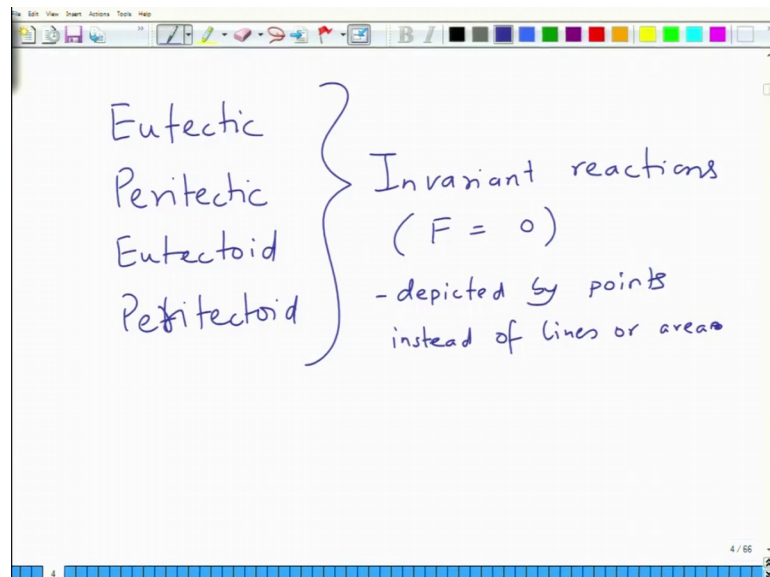 File Edit View Insert Actions Tools Help
B I
Eutectic
Peritectic
Eutectoid
Peritectoid
Invariant reactions
( F = 0 )
- depicted by points
instead of lines or areas
4 / 66
4